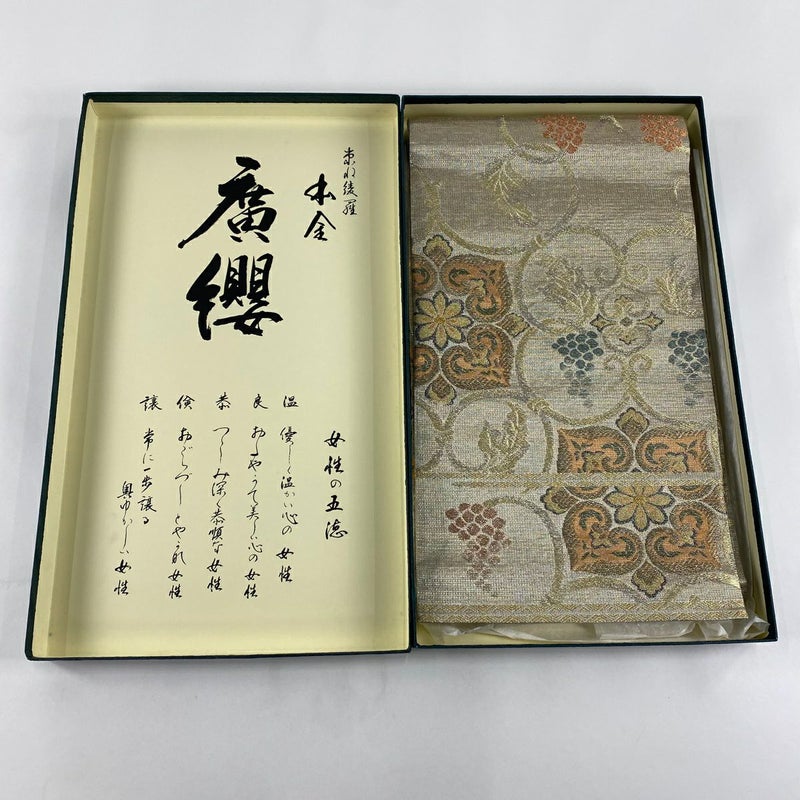 綾羅
本金
廣纓
女性の五徳
温 優しく温かい心の女性
良 美しい心の女性
恭 つつしみ深く恭順な女性
倹 おごらずしとやかな女性
譲 常に一歩譲る
奥ゆかしい女性